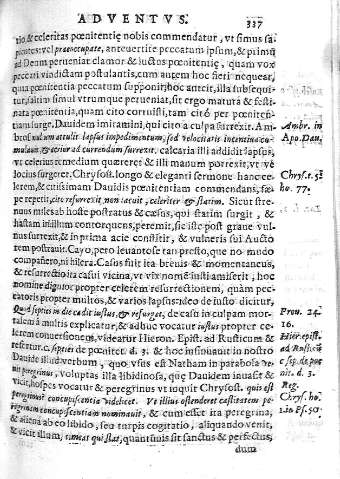 ADVENTVS. 337
tio, & celeritas pœnitentiæ nobis commendatur, vt simus sa-
pientes: vel præoccupate, anteuertite peccatum ipsum, & primū
ad Deum perueniat clamor & luctus pœnitentiæ, quam vox
peccati vindictam postulantis, cum autem hoc fieri nequeat,
quia pœnitentia peccatum supponit; hoc anteit, illa subsequi
tur, saltim simul vtrumque perueniat, sit ergo matura & festi
nata pœnitentia, quam cito corruisti, tam cito per pœnitenti
tiam surge. Dauidem imitamini, qui cito a culpa surrexit. Am
bros. non attulit lapsus impedimentum, sed velocitatis incentiua cu-
mulauit, & ecior ad currendum surrexit. calcaria illi addidit lapsus,
vt celerius remedium quæreret & illi manum porrexit, vt ve
locius surgeret, Chrysost. longo & eleganti sermone hanc ce-
lerem, & cuisimam Dauidis pœnitentiam commendans, sæ-
pe repetit, cito resurrexit, non iacuit, celeriter & statim. Sicut stre-
nuus miles ab hoste postratus & cæsus, qui statim surgit, &
hastam in illum contorquens, peremit, sic iste post graue vul-
nus surrexit, & in prima acie constitit, & vulneris sui Aucto
tem postrauit. Cayo, pero leuantose tan presto, que no modo
compañero, ni hilera. Casus fuit ita breuis & momentaneus,
& resurrectio ita casui vicina, vt vix nomē insti amiserit, hoc
nomine dignior propter celerem resurrectionem, quàm pec-
catoris propter multos, & varios lapsus: ideo de iusto dicitur,
Quod septies in die cadit iustus, & resurget, de casu in culpam mor-
talem à multis explicatur, & adhuc vocatur iustus propter ce-
lerem conuersionem, videatur Hieron. Epist. ad Rusticum &
refertur c. septies de pœnitet. d. 3. & hoc insinuatur in nostro
Dauide illud verbum, quo vsus est Natham in parabola ve-
nit peregrinus, voluptas illa libidinosa, quæ Dauidem inuasit &
vicit, hospes vocatur & peregrinus vt inquit Chrysost. quis est
peregrinus? concupiscentia videlicet. Vt illius ostenderet castitatem pe-
regrinam concupiscentiam nominauit, & cum esset ita peregrina,
& aliena ab eo libido, seu turpis cogitatio, aliquando venit,
& vicit illum, timeat qui stat, quantūuis sit sanctus & perfectus,
dum
Ambr. in
Apo. Dau.
Chrys. t. 5
ho. 77.
Prou. 24.
16.
Hier. epist.
ad Rustic.
c. sep. de pœ
nit. d. 3.
Reg.
Chrys. ho.
2. in Ps. 50.